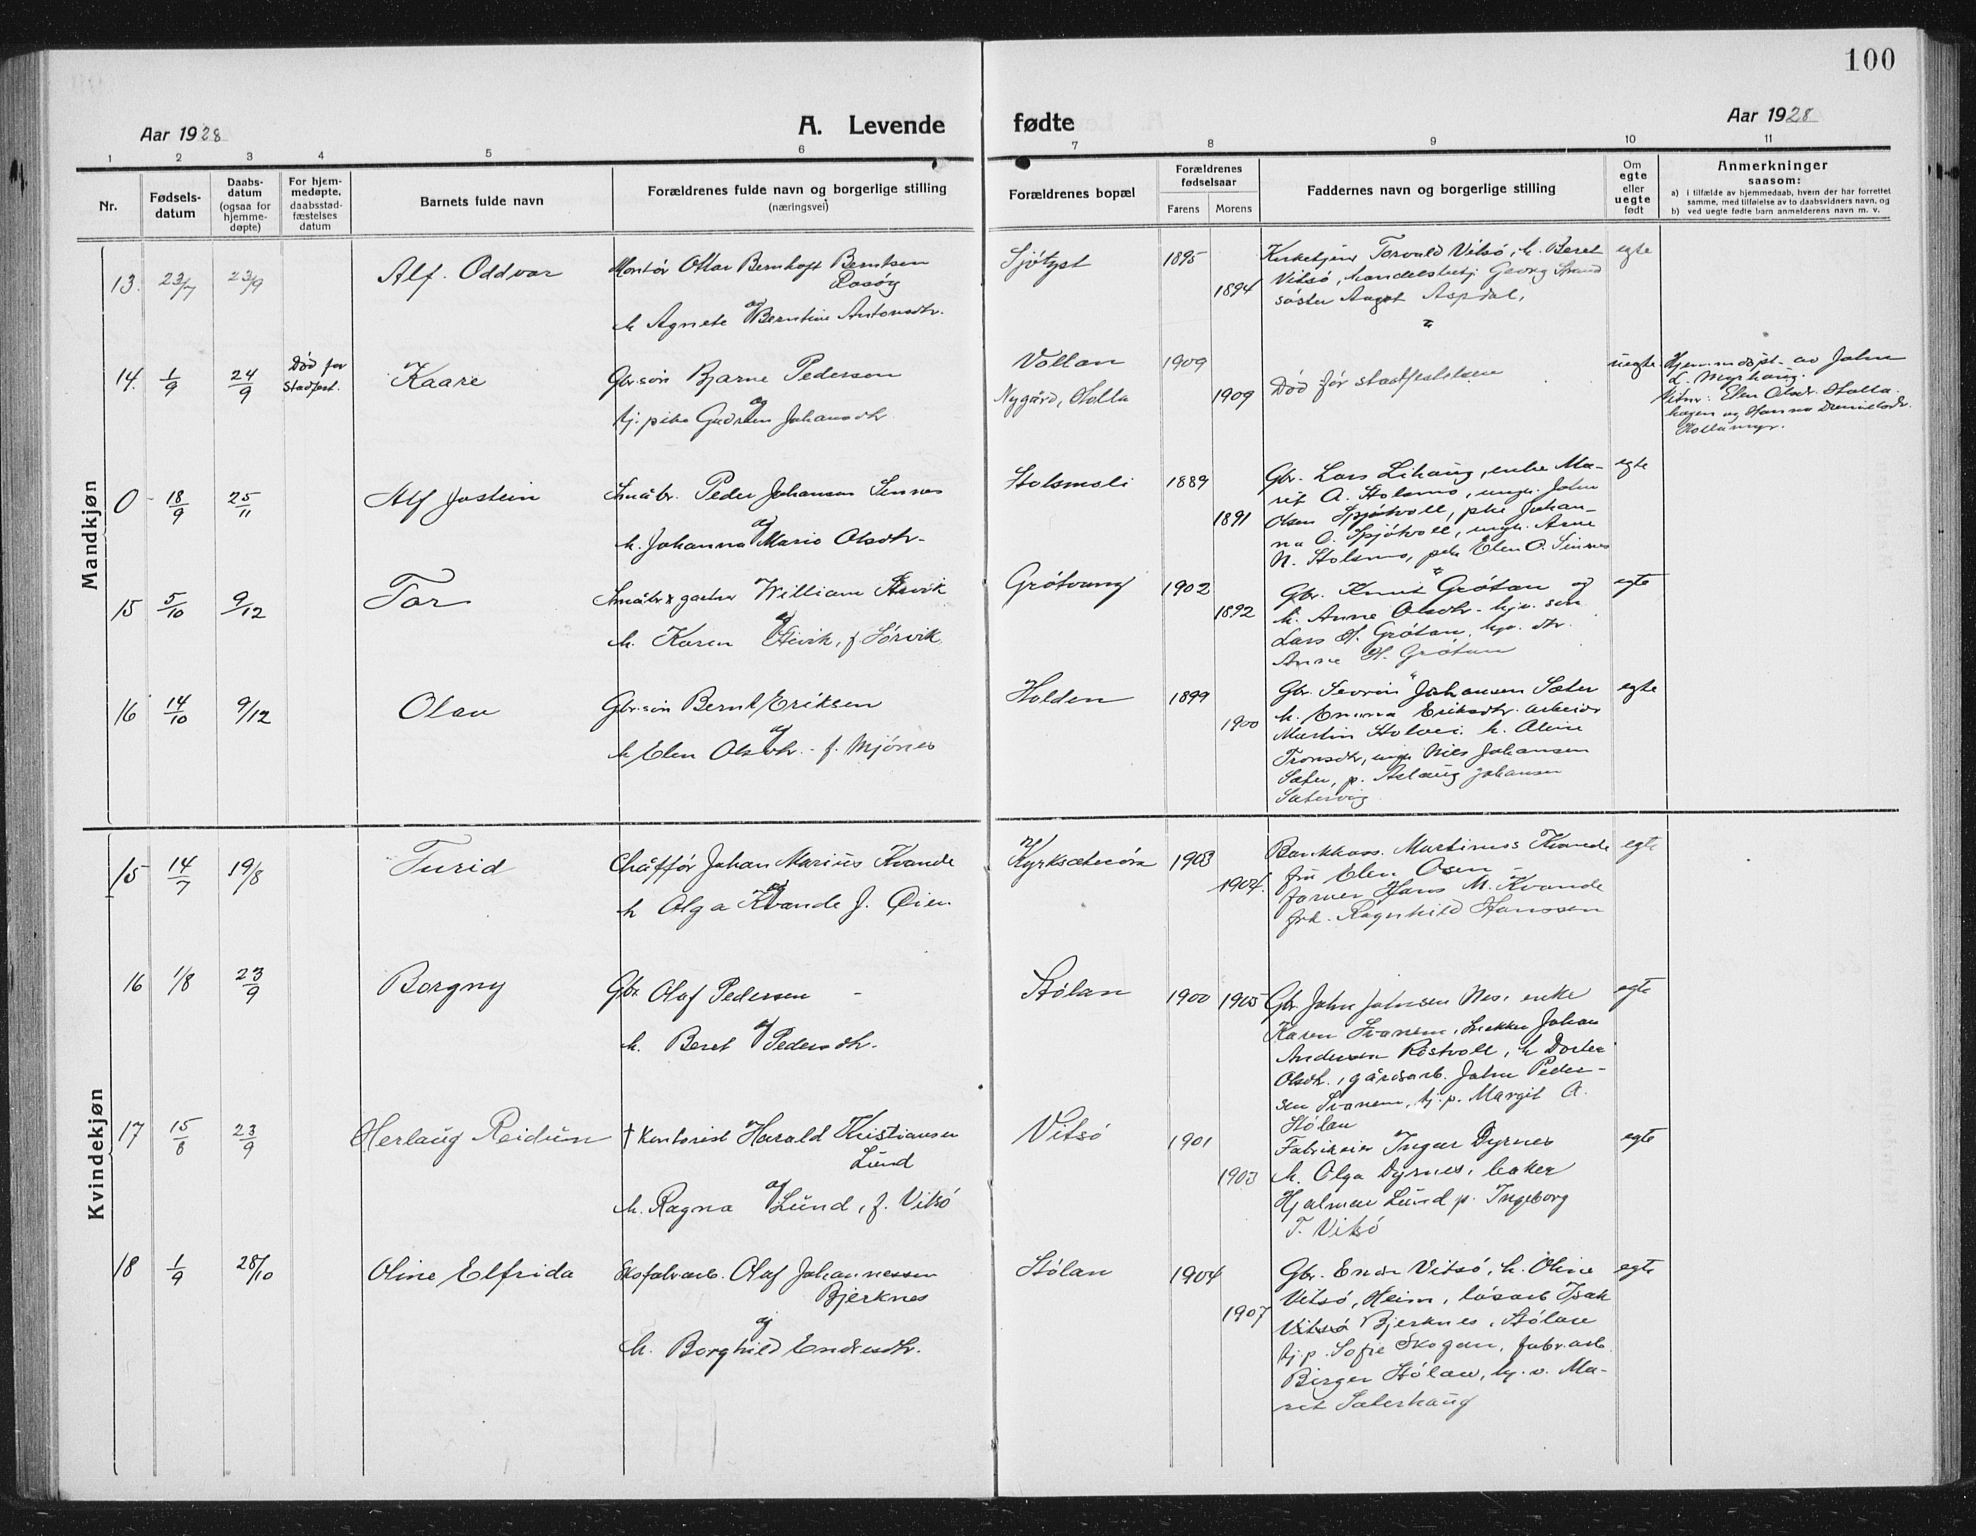 100
Aar 1928
A. Levende fødte
Aar 1928
1 2 3 4 5 6 7 8 9 10 11
Nr.
Fødsels-
datum
Daabs-
datum
(ogsaa for
hjemme-
døpte)
For hjem-
medøpte,
daabsstad-
fæstelses
datum
Barnets fulde navn
Forældrenes fulde navn og borgerlige stilling
(næringsvei)
Forældrenes bopæl
Forældrenes
fødselsaar
Farens Morens
Faddernes navn og borgerlige stilling
Om
egte
eller
uegte
født
Anmerkninger
saasom:
a) i tilfælde av hjemmedaab, hvem der har forrettet
samme, med tilføielse av to daabsvidners navn, og
b) ved uegte fødte barn anmelderens navn m. v.
Mandkjøn
13. 23/7 23/9 Alf. Oddvar
Montør Ottar Bernhoft Berntsen
Rosøy
og
h. Agnete Berntine Antonsdtr.
Sjøtyst 1895 1894
Kirketjener Torvald Vitsø, h. Beret
Vitsø, handelsbetj. Georg Strand
søster Aagot Aspdal,
egte
14. 1/9 24/9 Død før
stadfæst.
Kaare
Gbr.søn Bjarne Pedersen
og
tj. pike Gudrun Johansdtr.
Vollan 1909
Nygård, Holla 1909
Død før stadfestelsen
uegte
Hjemmedøpt av John
L. Myrhaug.
Vitner: Elen Olsdr. Holla
hagen og Hanna
Hollamyr.
0 18/9 25/11 Alf Jostein
Småbr. Peder Johansen Sinnes
og
h. Johanna Marie Olsdtr.
Stolsmoli 1889 1891
Gbr. Lars Lihaug, enke Ma-
rit A. Stolsmo, ungk. John
Olsen Spjøtvoll, pike Johan-
na O. Spjøtvoll, ungk. Arne
N. Stolsmo, pike Elen O. Sinnes
egte
15 5/10 9/12 Tor
Småbr & gartner William
og
h. Karen f Sørvik
Grøtvang 1902 1892
Gbr. Knut Grøtan og
h. Anne Olsdtr. hjv. søn
Lars H. Grøtan, hjv. dtr.
Anne H. Grøtan
egte
16 14/10 9/12 Olav
Gbr.søn Bernt Eriksen
og
h. Elen Olsdtr. f. Mjønes
Holden 1899 1900
Gbr. Sevrin Johansen Sæter
h. Emma Eriksdtr. arbeider
Martin h. Aline
Tronsdtr, ungk Nils Johansen
Sæter, p. Aslaug Johansen
Sætervig
egte
Kvindekjøn
15 14/7 19/8 Turid
Chåffør Johan Marius Kvande
og
h Olga Kvande f. Øien
Kyrksæterøra 1903 1904.
Bankkass. Martinus Kvande
fru Elen Osen
former Hans M. Kvande
frk. Ragnhild Hanssen
egte
16 1/8 23/9 Borgny
Gbr. Olaf Pedersen
og
h. Beret Pedersdtr.
Stølan 1900 1905
Gbr. John Johnsen Nes, enke
Karen Svanem, snekker Johan
Andersen Røstvoll, h Dorte
Olsdtr., gårdsarb. John Peder-
sen Svanem, tj. p. Margit A.
Stølan
egte
17 15/8 23/9 Herlaug Reidun
† Kontorist Harald Kristiansen
Lund
og
h. Ragna Lund, f. Vitsø
Vitsø 1901 1903
Fabrikeier Ingar Dyrnes
h. Olga Dyrnes, baker
Hjalmar Lund p. Ingeborg
T. Vitsø
egte
18 1/9 28/10 Oline Elfrida
Skofabrarb. Olaf Johannessen
Bjerknes
og
h. Borghild Endresdtr.
Stølan 1904 1907
Gbr. Endr Vitsø, h. Oline
Vitsø, Heim, løsarb Isak
Vitsø Bjerknes, Stølan
tj. p. Sofie Skogan, fabr.arb
Birger Stølan, tj. p. Ma-
rit Sæterhaug
egte